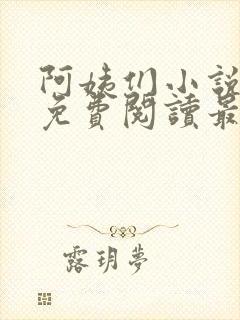 阿姨们小說
免費閱讀最
露玥夢